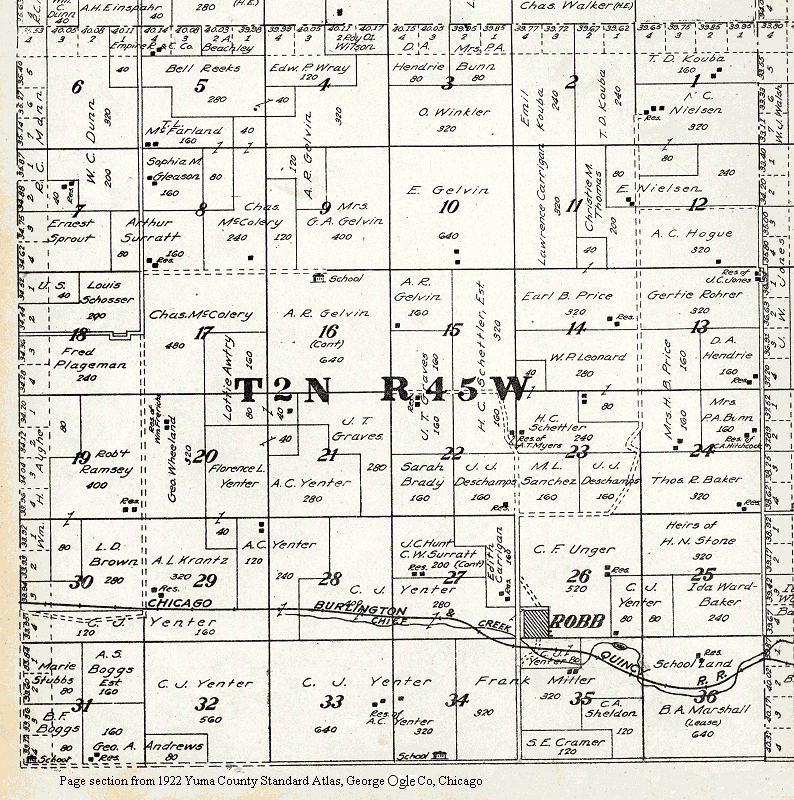 A.H. Einspahr
40
280
Chas. Walker (H.E)
Wm. Dunn
40
Empire R. & E. Co.
Beachley
Roy O.
Wilson
D. A.
Mrs. P.A.
Bell Reeks
Edw. P. Wray
120
Hendrie Bunn
80 80
T. D. Kouba
160
6
5
4
3
2
1
40
280
40
320
O. Winkler
320
Emil Kouba
240
T. D. Kouba
240
A C.
Nielsen
320
Res.
W. C. Dunn
320
200
T.L.
McFarland
160
40
W. J. Walsh
R. C. Mann
Sophia M.
Gleason
160
80
120
A. R. Gelvin
E. Gelvin
640
Lawrence Carrigan
320
Christie M. Thomas
200
80
80
240
E. Nielsen
40
Res.
7
8
9
10
11
12
Ernest
Sprout
Arthur
Surratt
80
160
Res.
Chas.
McColery
240
120
Mrs.
G. A. Gelvin
400
40
A. C. Hogue
320
Res of
J.C. Jones
U. S.
40
Louis
Schosser
200
School
Chas. McColery
480
A. R. Gelvin
(Cont)
640
A. R.
Gelvin
160
H. C. Schettler, Est
320
Earl B. Price
320
Res.
Gertie Rohrer
160
J. W. Jones
18
17
16
15
14
13
Fred
Plageman
240
Lottie Awtry
160
80
J. T. Graves
160
Res.
W. P. Leonard
280
40
Mrs. H. B. Price
160
160
D. A.
Hendrie
160
Res.
T 2 N R 4 5 W
80
Res. of Wm Frerichs
Geo. Wheeland
320
40
40
J. T.
Graves
280
H.C.
Schettler
240
Res of
A.T. Myers
80
Mrs.
P.A. Bunn
160
Res. of
C.A. Hitchcock
19
20
21
22
23
24
H. Aughe
Rob't
Ramsey
400
Res.
Florence L.
Yenter
A.C. Yenter
280
Sarah
Brady
160
J. J.
Deschamps
160
Res.
M. L.
Sanchez
160
J. J.
Deschamps
160
Thos. R. Baker
320
Res.
Wm.
80
L. D.
Brown
280
A. L. Krantz
320
Res.
40
120
A. C. Yenter
240
J.C. Hunt
C. W. Surratt
Res. 200 (Cont)
Edith Carrigan
160
Res.
C. F. Unger
520
Res.
Heirs of
H. N. Stone
320
30
29
28
27
26
25
C. J. Yenter
280
C. J.
Yenter
80 80
Ida Ward-
Baker
240
CHICAGO
BURLINGTON
&
QUINCY
R. R.
CHIEF
CREEK
ROBB
C. J.
120
Yenter
160
C. J.
Yenter 80
Marie
Stubbs
80
A. S.
Boggs
Est
160
C. J. Yenter
560
C. J. Yenter
640
Res of
A.C. Yenter
320
Frank Miller
320
320
School Land
Res.
31
32
33
34
35
36
B. F.
Boggs
80
160
Geo. A. Andrews
Res. 80
School
School
C. A.
Sheldon
120
S. E. Cramer
120
B. A. Marshall
(Lease)
640
Page section from 1922 Yuma County Standard Atlas, George Ogle Co, Chicago